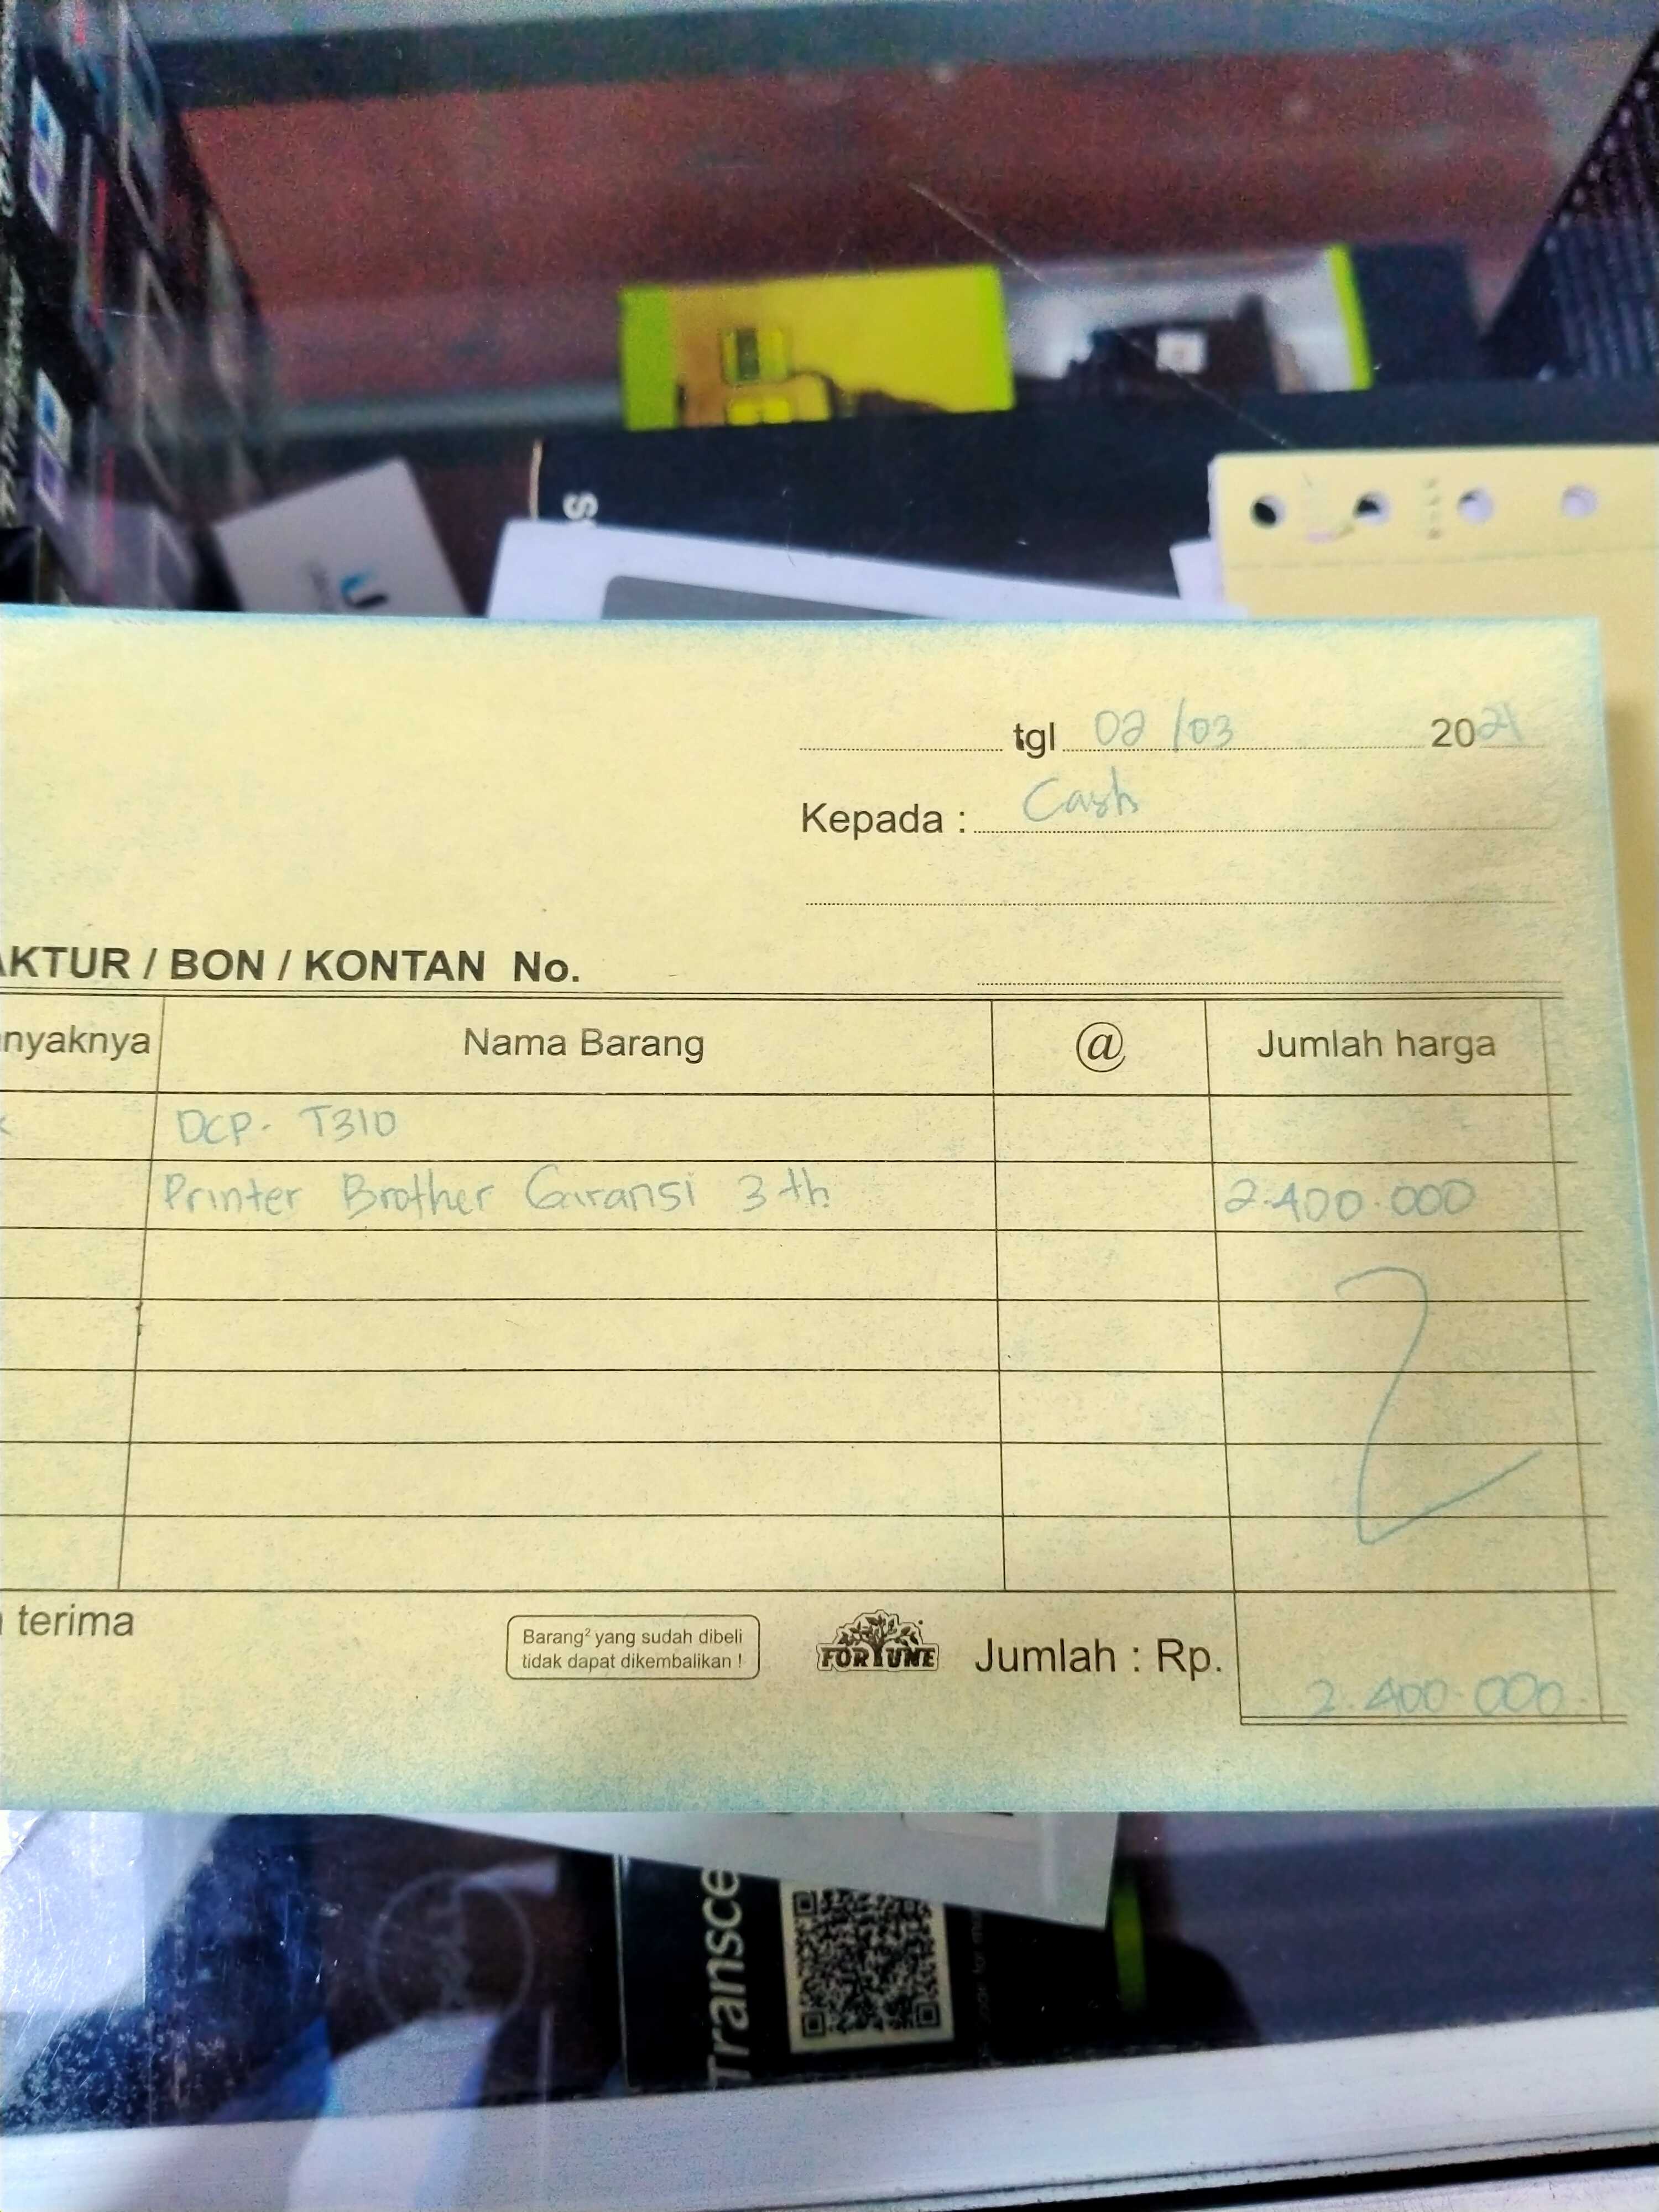 tgl 02/03 2021
Kepada : Cash
AKTUR / BON / KONTAN No.
nyaknya Nama Barang @ Jumlah harga
DCP- T310
Printer Brother Garansi 3 th 2.400.000
terima
Barang² yang sudah dibeli
tidak dapat dikembalikan !
FORTUNE
Jumlah : Rp.
2.400.000
Transce